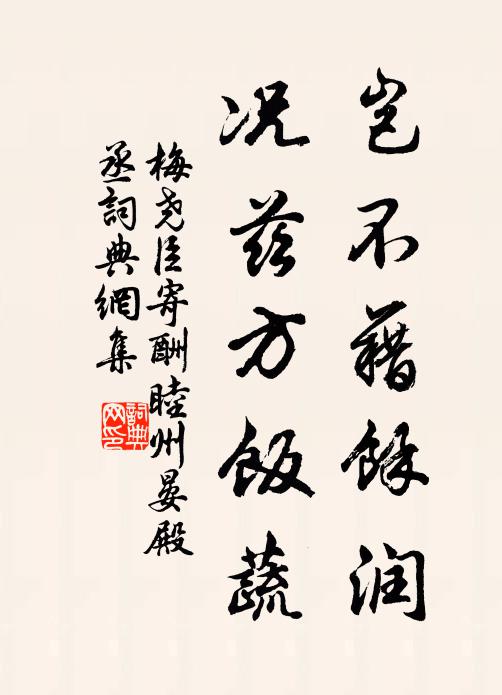 岂不藉馀润
况兹方饭蔬
梅尧臣寄酬睦州晏殿
丞詞典網集
詞典网印